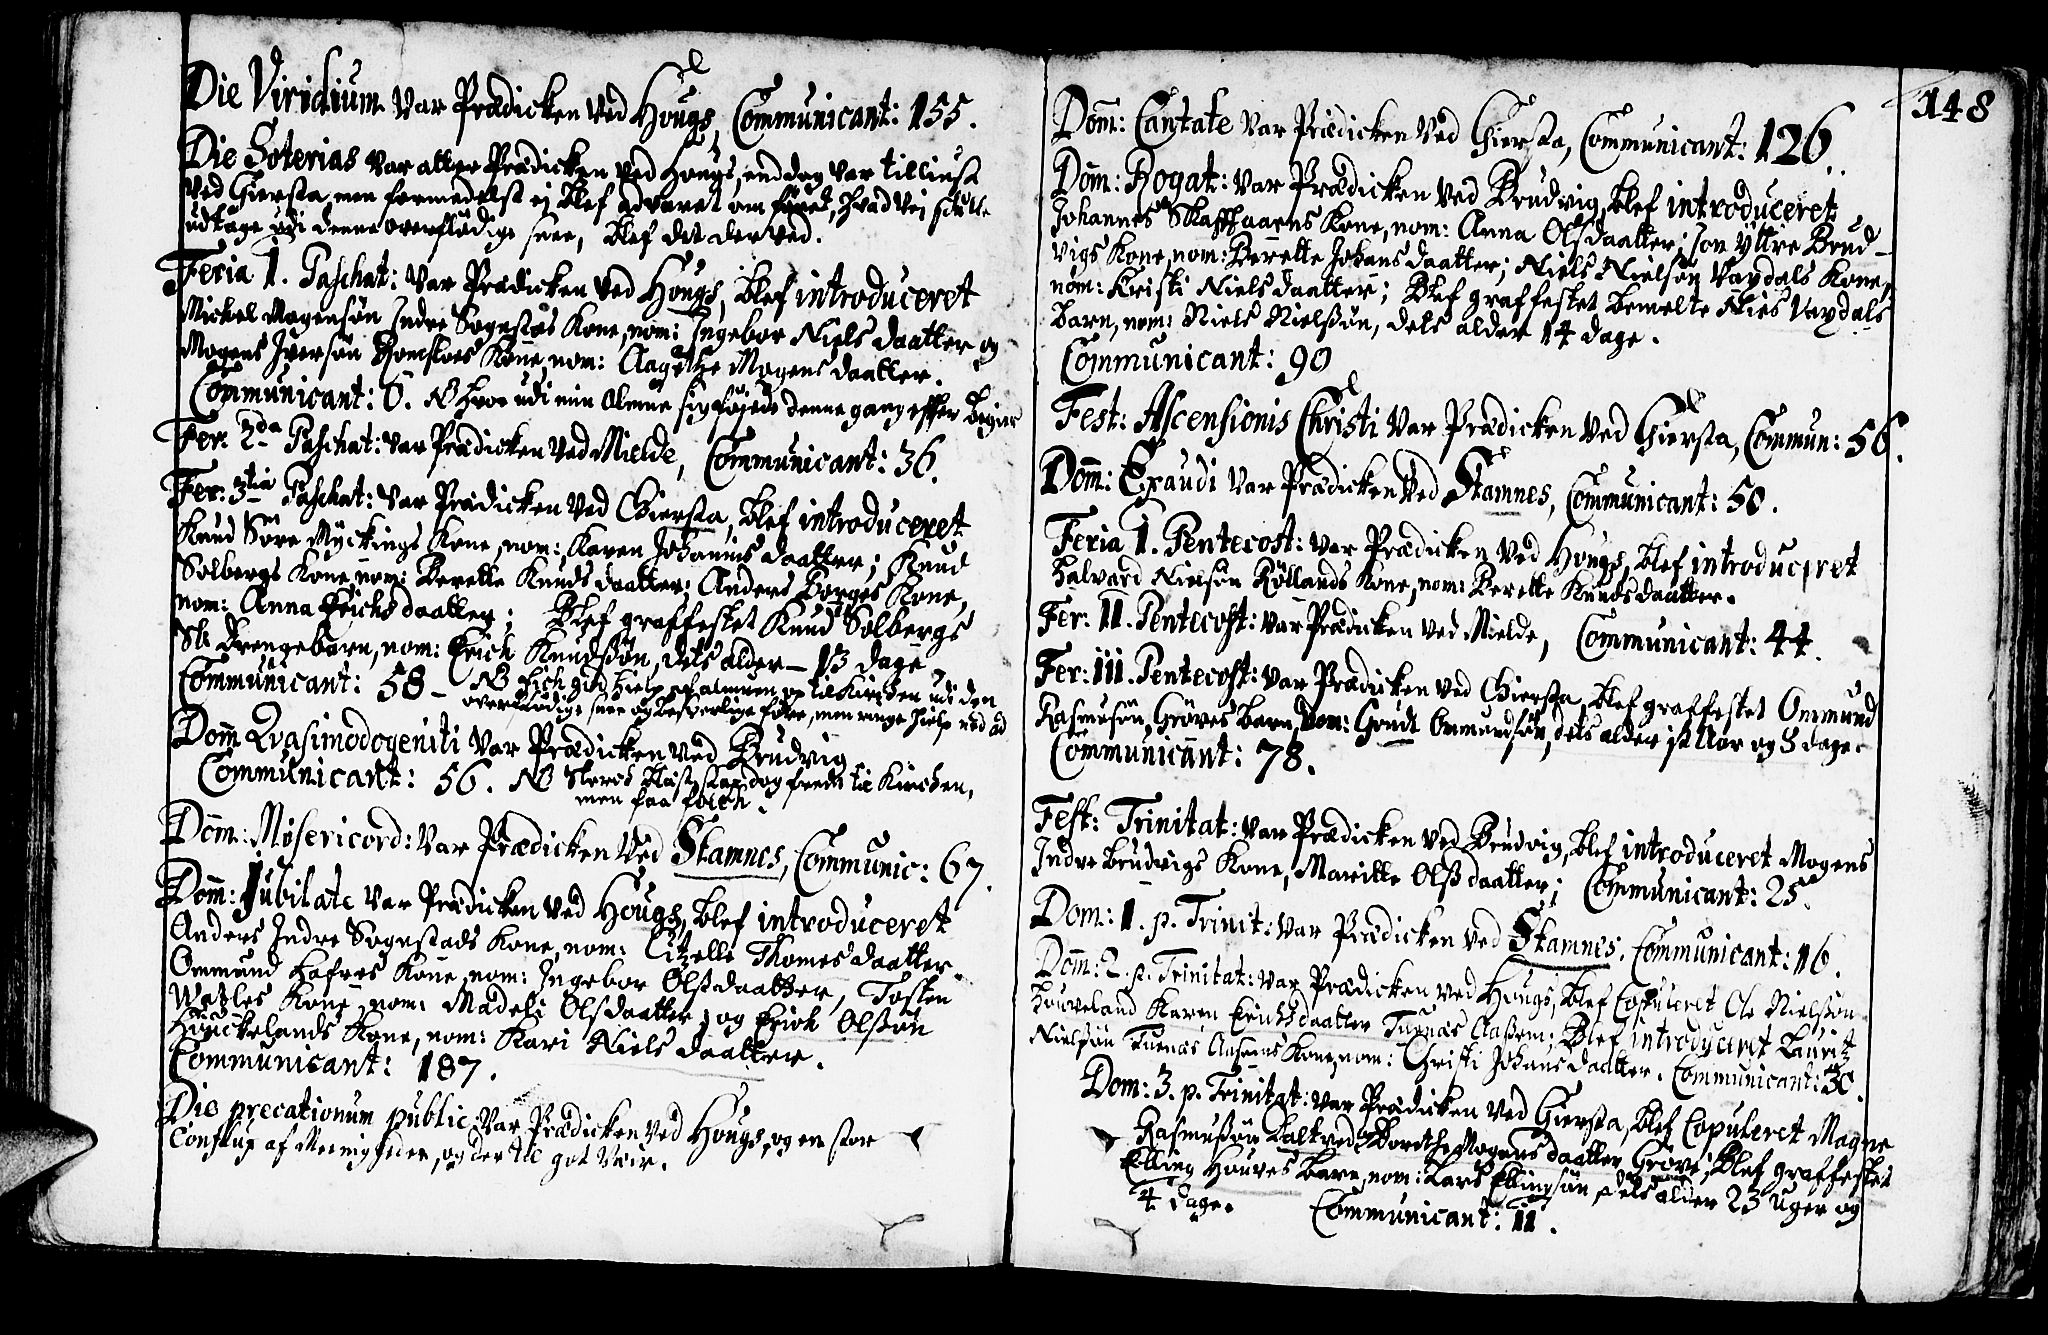 Die Viridium var Prædicken ved Hougs, Communicant: 155.
Die Soterias var atter Prædicken ved Hougs, end dog var tilliust
ved Giersta, men formedelst ej blef advaret om føred, hvad vej skulle
udtage udi denne overflødige snee, blef det derved.
Feria 1. Paschat: var Prædicken ved Hougs, blef introduceret
Mickel Mogensøn Indre Sognstas Kone, nom: Ingebor Niels daatter og
Mogens Iversøn Romsloes Kone, nom: Aagethe Mogens daatter.
Communicant: 6. NB hvor udi min Almue sig føjede denne gang effter begier
Fer: 2da Paschat: var Prædicken ved Mielde, Communicant: 36.
Fer: 3tia Paschat: var Prædicken ved Giersta, blef introduceret
Knud Søre Myckings Kone, nom: Karen Johannis daatter; Knud
Solbergs Kone, nom: Berette Knuds daatter; Anders Borges Kone,
nom: Anna Erichs daatter; Blef graffestet Knud Solbergs
Sl: drengebarn, nom: Erich Knudssøn, dets alder - 13 dage
Communicant: 58 - NB fich gud hielp op til Kirchen udi den
overflødige snee og besverlige føre, men ringe hielp ved
Dom̄ Qvasimodogeniti var Prædicken ved Brudvig
Communicant: 56. NB sterch blæst, slap dog frem til Kirchen,
men faa folch.
Dom̄: Misericord: var Prædicken ved Stamnes, Communic: 67.
Dom̄: Jubilate var Prædicken ved Hougs, blef introduceret
Anders Indre Sognstads Kone, nom: Citzelle Thomes daatter.
Ommund Hafres Kone, nom: Ingebor Olssdaatter, Tosten
Watles Kone, nom: Madeli Olsdaatter; og Erich Olssøn
Hauckelands Kone, nom: Kari Niels daatter.
Communicant: 187.
Die precationum public: var Prædicken ved Hougs, og en stor
Conflux af Meenigheden, og der til got Veir.
148
Dom̄: Cantate var Prædicken ved Giersta, Communicant: 126.
Dom̄: Rogat: var Prædicken ved Brudvig, blef introduceret
Johannes Skafthaarns Kone, nom: Anna Olsdaatter; Jon Yttre Brud-
vigs Kone, nom: Berette Johans daatter; Niels Nielsøn Vaxdals Kone,
nom: Kristi Niels daatter; Blef graffestet bemelte Niels Vaxdals
barn, nom: Niels Nielssøn, dets alder 14 dage.
Communicant: 90
Fest: Ascensionis Christi var Prædicken ved Giersta, Commun: 56.
Dom̄: Exaudi var Prædicken ved Stamnes, Communicant: 50.
Feria 1. Pentecost: var Prædicken ved Hougs, blef introduceret
Halvard Nielsøn Røllands Kone, nom: Berette Knuds daatter.
Fer: II. Pentecost: var Prædicken ved Mielde, Communicant: 44.
Fer: III. Pentecost: var Prædicken ved Giersta, blef graffestet Ommund
Rasmusøn Gröves barn, nom: Grudt Ommundsøn, dets alder 1½ Aar og 3 dage.
Communicant: 78.
Fest: Trinitat: var Prædicken ved Brudvig, blef introduceret Mogens
Indre Brudvigs Kone, Maritte Olss daatter; Communicant: 25.
Dom: 1. p. Trinit: var Prædicken ved Stamnes. Communicant: 16.
Dom̄: 2. p. Trinitat: var Prædicken ved Hougs, blef Copuleret Ole Nielssøn
Houveland Karen Erichsdaatter Tuenæs Aassem; Blef introduceret Lauritz
Nielssøn Tuenæs Aasems Kone, nom: Christi Johans daatter. Communicant: 30.
Dom: 3. p. Trinitat: var Prædicken ved Giersta, blef Copuleret Magne
Rasmussøn Dalt ved Dorethe Mogens daatter Gröve; Blef graffestet
Elling Houves barn, nom: Lars Ellingsøn dets alder 23 uger og
4 dage. Communicant: 11.